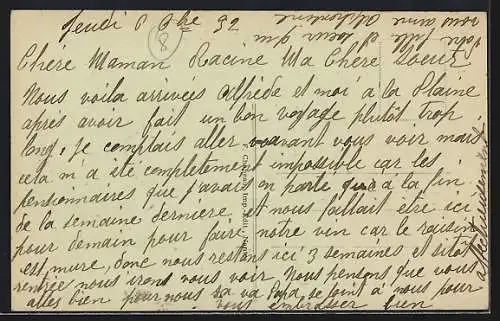 Jeudi 8 9bre 32
8
Chère Maman Racine Ma Chère Soeur
Nous voila arrivées Alfrède et moi a la Plaine
après avoir fait un bon voyage plutôt trop
long, je comptais aller avant vous voir mais
cela m'a été completement impossible car les
pensionnaires que j'avais en parte qu'a la fin
de la semaine dernière et nous fallait être ici
pour demain pour faire notre vin car le raisin
est mure, donc nous restons ici 3 semaines et sitôt
rentrée nous irons vous voir. Nous pensons que vous
allez bien pour nous sa va Papa se joint à nous pour
vous embrasser bien
affectueusement
votre fille et soeur qui
vous aime